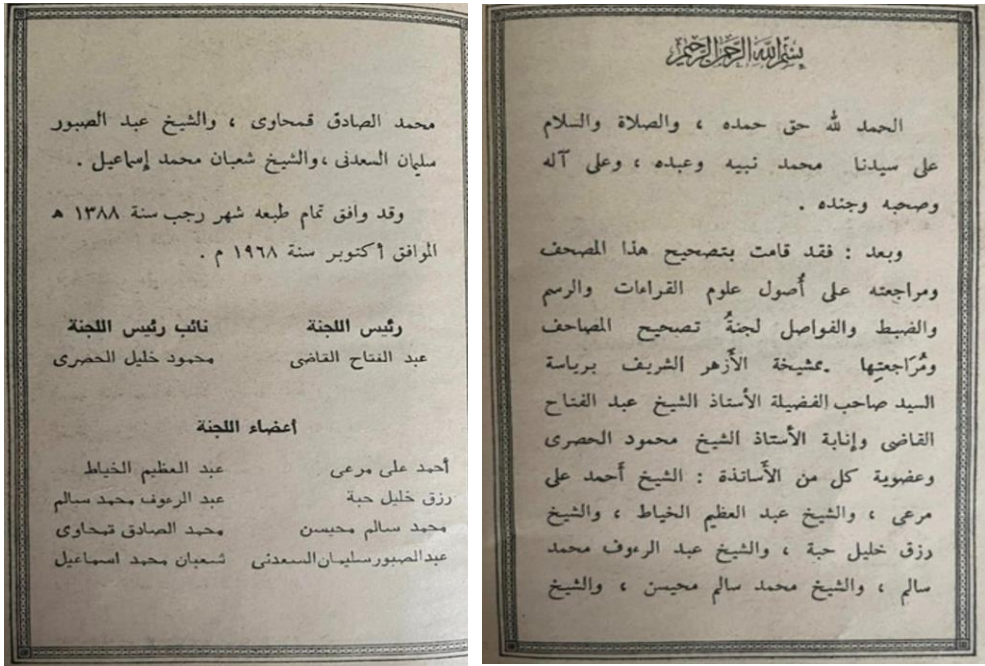 بسم الله الرحمن الرحيم
الحمد لله حق حمده ، والصلاة والسلام
على سيدنا محمد نبيه وعبده ، وعلى آله
وصحبه وجنده .
وبعد : فقد قامت بتصحيح هذا المصحف
ومراجعته على أُصول علوم القراءات والرسم
والضبط والفواصل لجنةُ تصحيح المصاحف
ومُرَاجعتِها بمشيخة الأَزهر الشريف برياسة
السيد صاحب الفضيلة الأستاذ الشيخ عبد الفتاح
القاضى وإنابة الأستاذ الشيخ محمود الحصرى
وعضوية كل من الأَساتذة : الشيخ أَحمد على
مرعى ، والشيخ عبد العظيم الخياط ، والشيخ
رزق خليل حبة ، والشيخ عبد الرءوف محمد
سالم ، والشيخ محمد سالم محيسن ، والشيخ
محمد الصادق قمحاوى ، والشيخ عبد الصبور
سليمان السعدنى ، والشيخ شعبان محمد إسماعيل .
وقد وافق تمام طبعه شهر رجب سنة ١٣٨٨ ه
الموافق أكتوبر سنة ١٩٦٨ م .
رئيس اللجنة نائب رئيس اللجنة
عبد الفتاح القاضى محمود خليل الحصرى
أعضاء اللجنة
أحمد على مرعى عبد العظيم الخياط
رزق خليل حبة عبد الرءوف محمد سالم
محمد سالم محيسن محمد الصادق قمحاوى
عبد الصبور سليمان السعدنى شعبان محمد اسماعيل